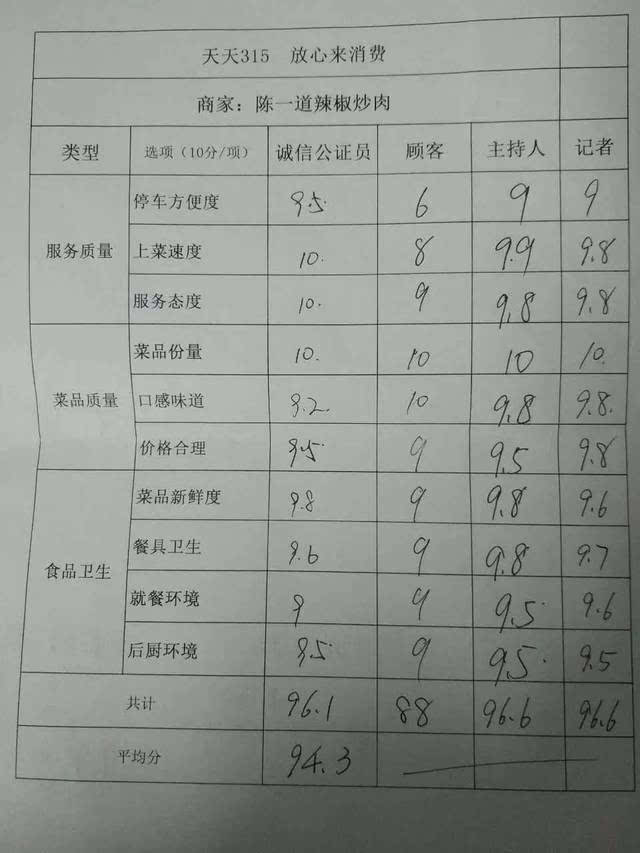 天天315 放心来消费
商家：陈一道辣椒炒肉
类型 选项（10分/项） 诚信公证员 顾客 主持人 记者
停车方便度 9.5 6 9 9
服务质量 上菜速度 10. 8 9.9 9.8
服务态度 10. 9 9.8 9.8
菜品份量 10. 10 10 10.
菜品质量 口感味道 9.2 10 9.8 9.8.
价格合理 9.5 9 9.5 9.8
菜品新鲜度 9.8 9 9.8 9.6
餐具卫生 9.6 9 9.8 9.7
食品卫生 就餐环境 9 9 9.5 9.6
后厨环境 9.5 9 9.5 9.5
共计 96.1 88 96.6 96.6
平均分 94.3